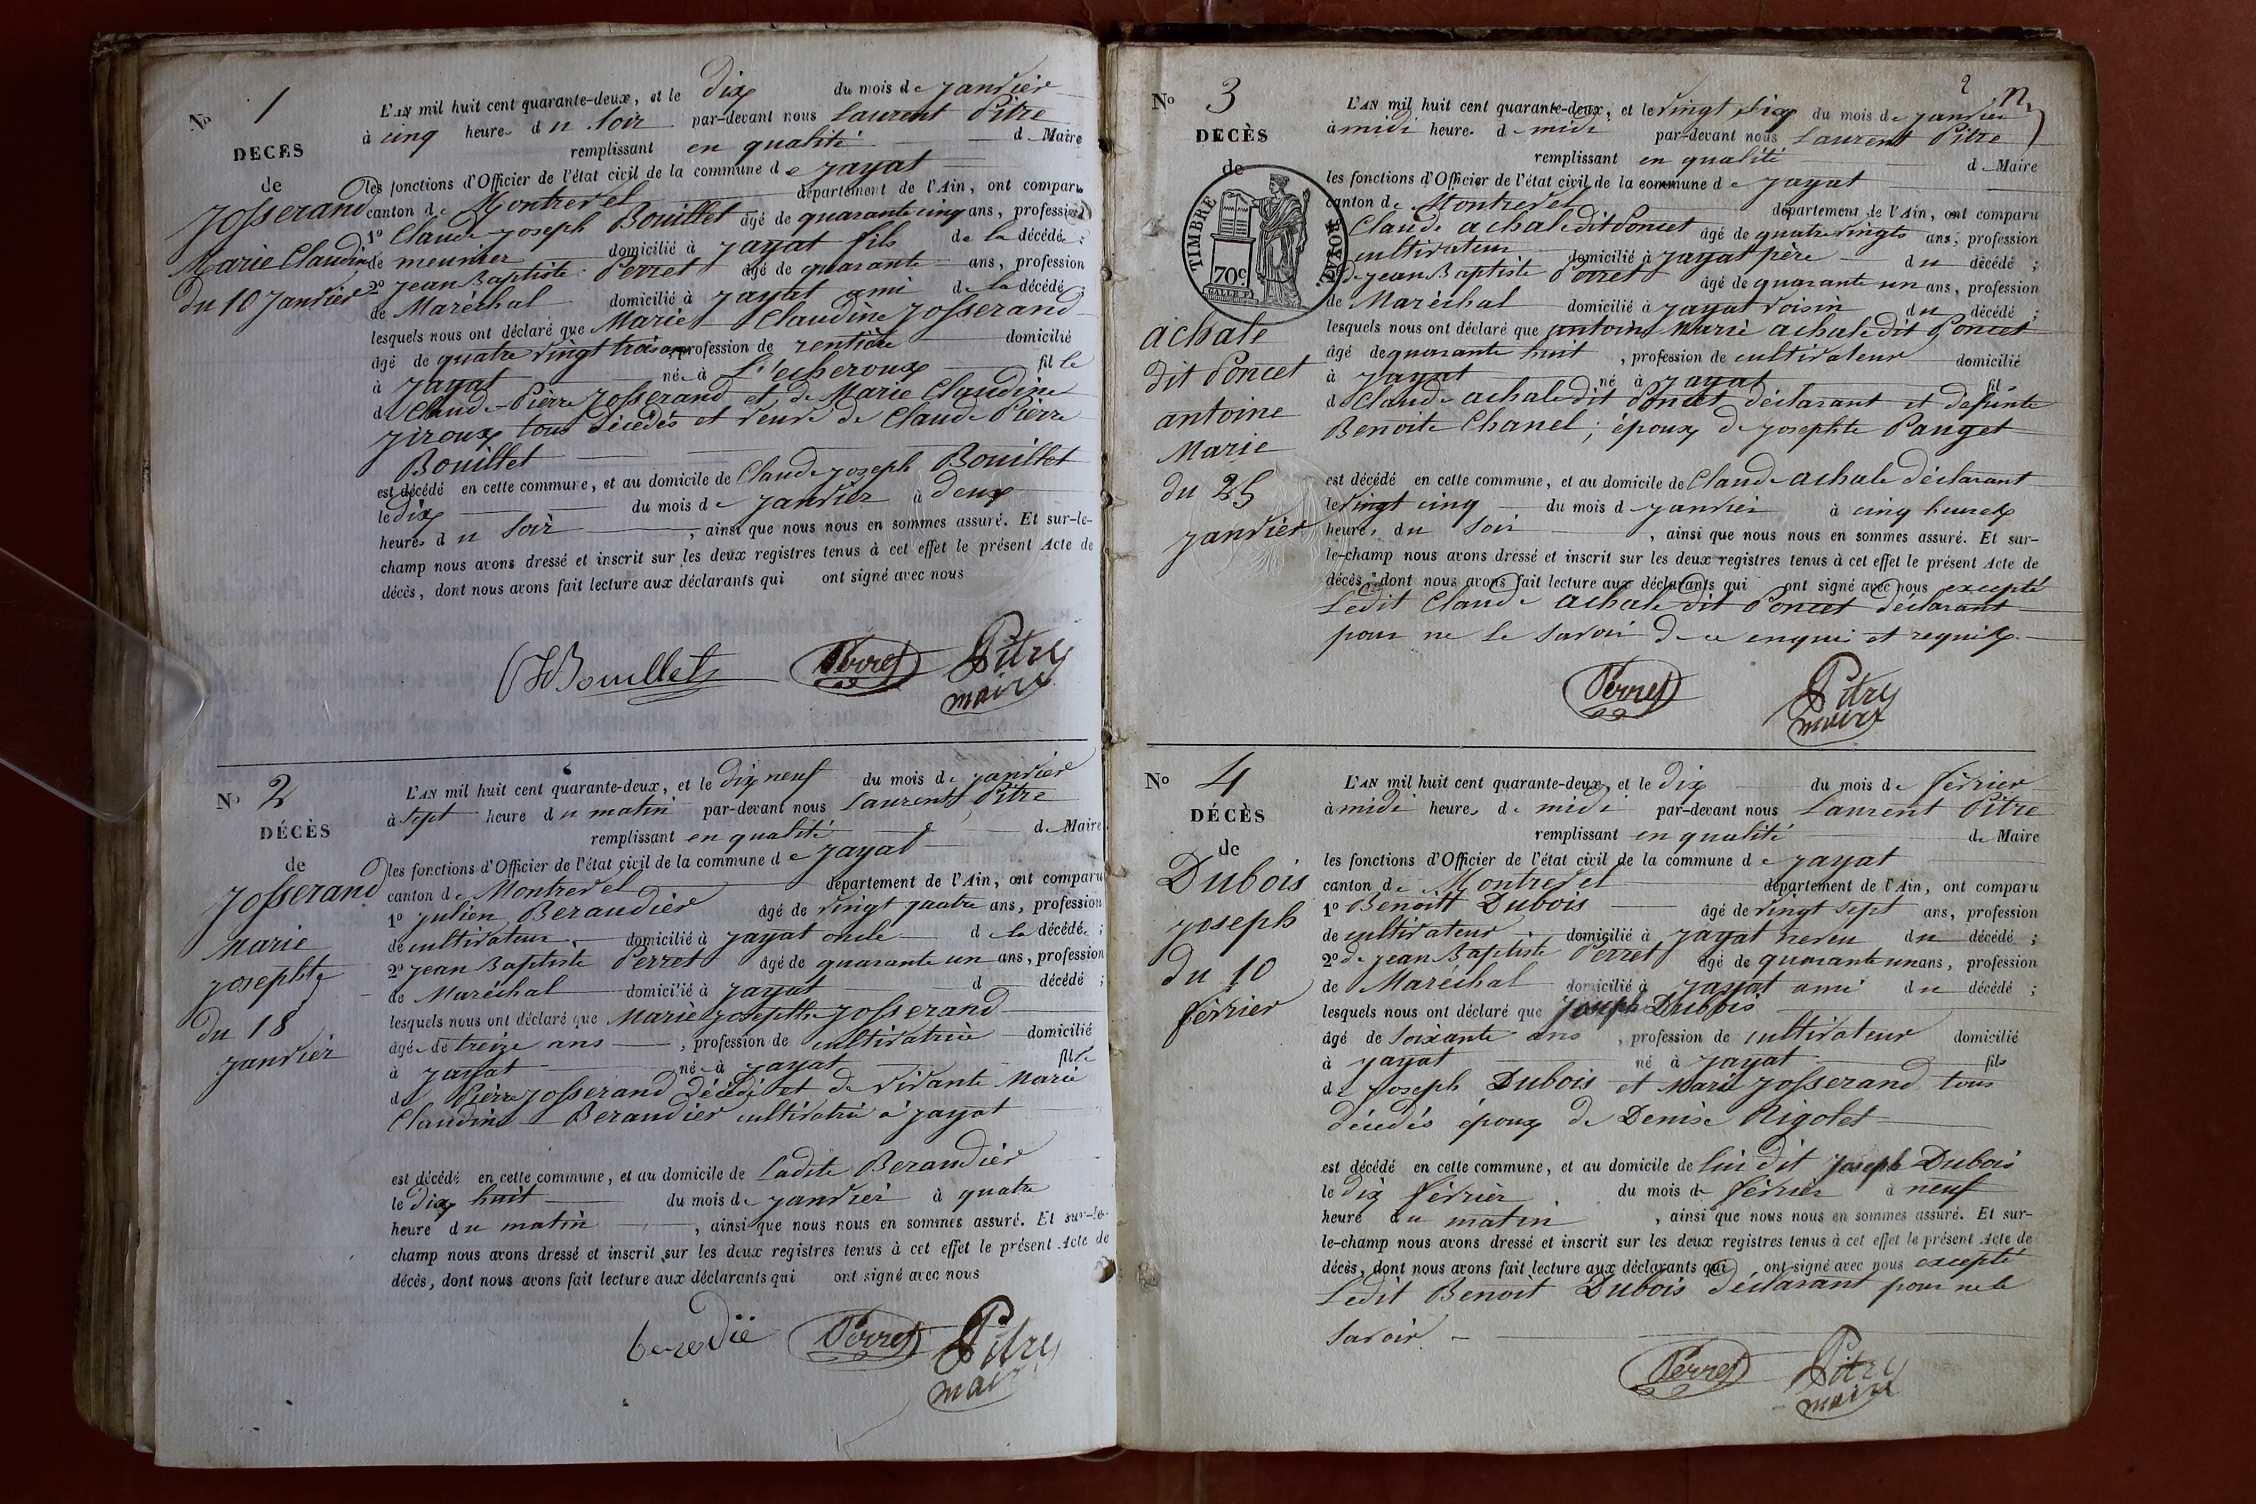 No 1
DÉCÈS
de
Josserand
Marie Claudine
du 10 Janvier
L'AN mil huit cent quarante-deux, et le dix du mois de janvier
à cinq heures du soir par-devant nous Laurent Pitre
remplissant en qualité de Maire
les fonctions d'Officier de l'état civil de la commune de jayat
canton de Montrevel département de l'Ain, ont comparu
1o Claude joseph Bouillet âgé de quarante cinq ans, profession
de meunier domicilié à jayat fils de la décédée ;
2o jean Baptiste Perret âgé de quarante ans, profession
de Maréchal domicilié à jayat ami de la décédé ;
lesquels nous ont déclaré que Marie Claudine Josserand
âgé de quatre vingt trois ans profession de rentière domicilié
à jayat née à L'écheroux fille
de Claude-Pierre Josserand et de Marie Claudine
jiroux tous décédés et veuve de Claude Pierre
Bouillet
est décédé en cette commune, et au domicile de Claude joseph Bouillet
le dix du mois de janvier à deux
heures du soir , ainsi que nous nous en sommes assuré. Et sur-le-
champ nous avons dressé et inscrit sur les deux registres tenus à cet effet le présent Acte de
décès, dont nous avons fait lecture aux déclarants qui ont signé avec nous
Bouillet Perret Pitre
maire
No 2
DÉCÈS
de
Josserand
Marie
josephte
du 18
janvier
L'AN mil huit cent quarante-deux, et le dix neuf du mois de janvier
à sept heure du matin par-devant nous Laurent Pitre
remplissant en qualité de Maire
les fonctions d'Officier de l'état civil de la commune de jayat
canton de Montrevel département de l'Ain, ont comparu
1o julien Beraudier âgé de vingt quatre ans, profession
de cultivateur domicilié à jayat oncle de la décédée ;
2o jean Baptiste Perret âgé de quarante un ans, profession
de Maréchal domicilié à jayat d décédé ;
lesquels nous ont déclaré que Marie josephte josserand
âgée de treize ans , profession de cultivatrice domicilié
à jayat née à jayat fille
de Pierre josserand décédé et de vivante Marie
Claudine Beraudier cultivatrice à jayat
est décédé en cette commune, et au domicile de ladite Beraudier
le dix huit du mois de janvier à quatre
heure du matin , ainsi que nous nous en sommes assuré. Et sur-le-
champ nous avons dressé et inscrit sur les deux registres tenus à cet effet le présent Acte de
décès, dont nous avons fait lecture aux déclarants qui ont signé avec nous
Perret Pitre
maire
2
No 3
DÉCÈS
de
TIMBRE ROYAL
70c
achale
dit Poncet
antoine
Marie
du 25
janvier
L'AN mil huit cent quarante-deux, et le vingt six du mois de janvier
à midi heure de midi par-devant nous Laurent Pitre
remplissant en qualité de Maire
les fonctions d'Officier de l'état civil de la commune de jayat
canton de Montrevel département de l'Ain, ont comparu
Claude achale dit Poncet âgé de quatre vingts ans, profession
cultivateur domicilié à jayat père du décédé ;
de jean Baptiste Perret âgé de quarante un ans, profession
de Maréchal domicilié à jayat voisin du décédé ;
lesquels nous ont déclaré que antoine Marie achale dit Poncet
âgé de quarante huit , profession de cultivateur domicilié
à jayat né à jayat fils
de Claude achale dit Poncet déclarant et defunte
Benoite Chanel ; époux de josephte Panget
est décédé en cette commune, et au domicile de Claude achale déclarant
le vingt cinq du mois de janvier à cinq heures
heures du soir , ainsi que nous nous en sommes assuré. Et sur-
le-champ nous avons dressé et inscrit sur les deux registres tenus à cet effet le présent Acte de
décès, dont nous avons fait lecture aux déclarants qui ont signé avec nous excepté
Ledit Claude achale dit Poncet déclarant
pour ne le savoir de ce enquis et requis
Perret Pitre
maire
No 4
DÉCÈS
de
Dubois
joseph
du 10
février
L'AN mil huit cent quarante-deux, et le dix du mois de février
à midi heures de midi par-devant nous Laurent Pitre
remplissant en qualité de Maire
les fonctions d'Officier de l'état civil de la commune de jayat
canton de Montrevel département de l'Ain, ont comparu
1o Benoitt Dubois âgé de vingt sept ans, profession
de cultivateur domicilié à jayat neveu du décédé ;
2o de jean Baptiste Perret âgé de quarante un ans, profession
de Maréchal domicilié à jayat ami du décédé ;
lesquels nous ont déclaré que joseph Dubois
âgé de soixante ans , profession de cultivateur domicilié
à jayat né à jayat fils
de joseph Dubois et Marie josserand tous
décédés époux de Denise Rigolet
est décédé en cette commune, et au domicile de lui dit joseph Dubois
le dix février du mois de février à neuf
heure du matin , ainsi que nous nous en sommes assuré. Et sur-
le-champ nous avons dressé et inscrit sur les deux registres tenus à cet effet le présent Acte de
décès, dont nous avons fait lecture aux déclarants qui ont signé avec nous excepté
Ledit Benoit Dubois déclarant pour ne le
savoir.
Perret Pitre
maire